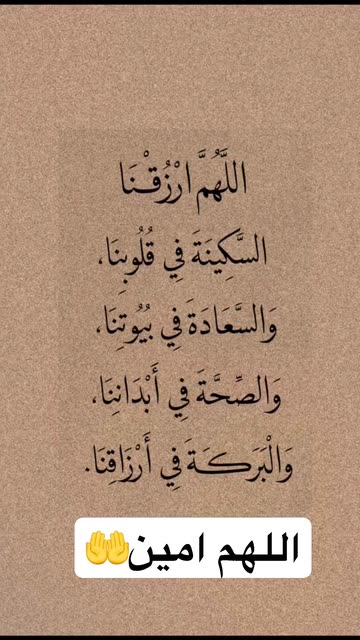 اللَّهُمَّ ارْزُقْنَا
السَّكِينَةَ فِي قُلُوبِنَا،
وَالسَّعَادَةَ فِي بُيُوتِنَا،
وَالصِّحَّةَ فِي أَبْدَانِنَا،
وَالْبَرَكَةَ فِي أَرْزَاقِنَا.
اللهم امين🤲